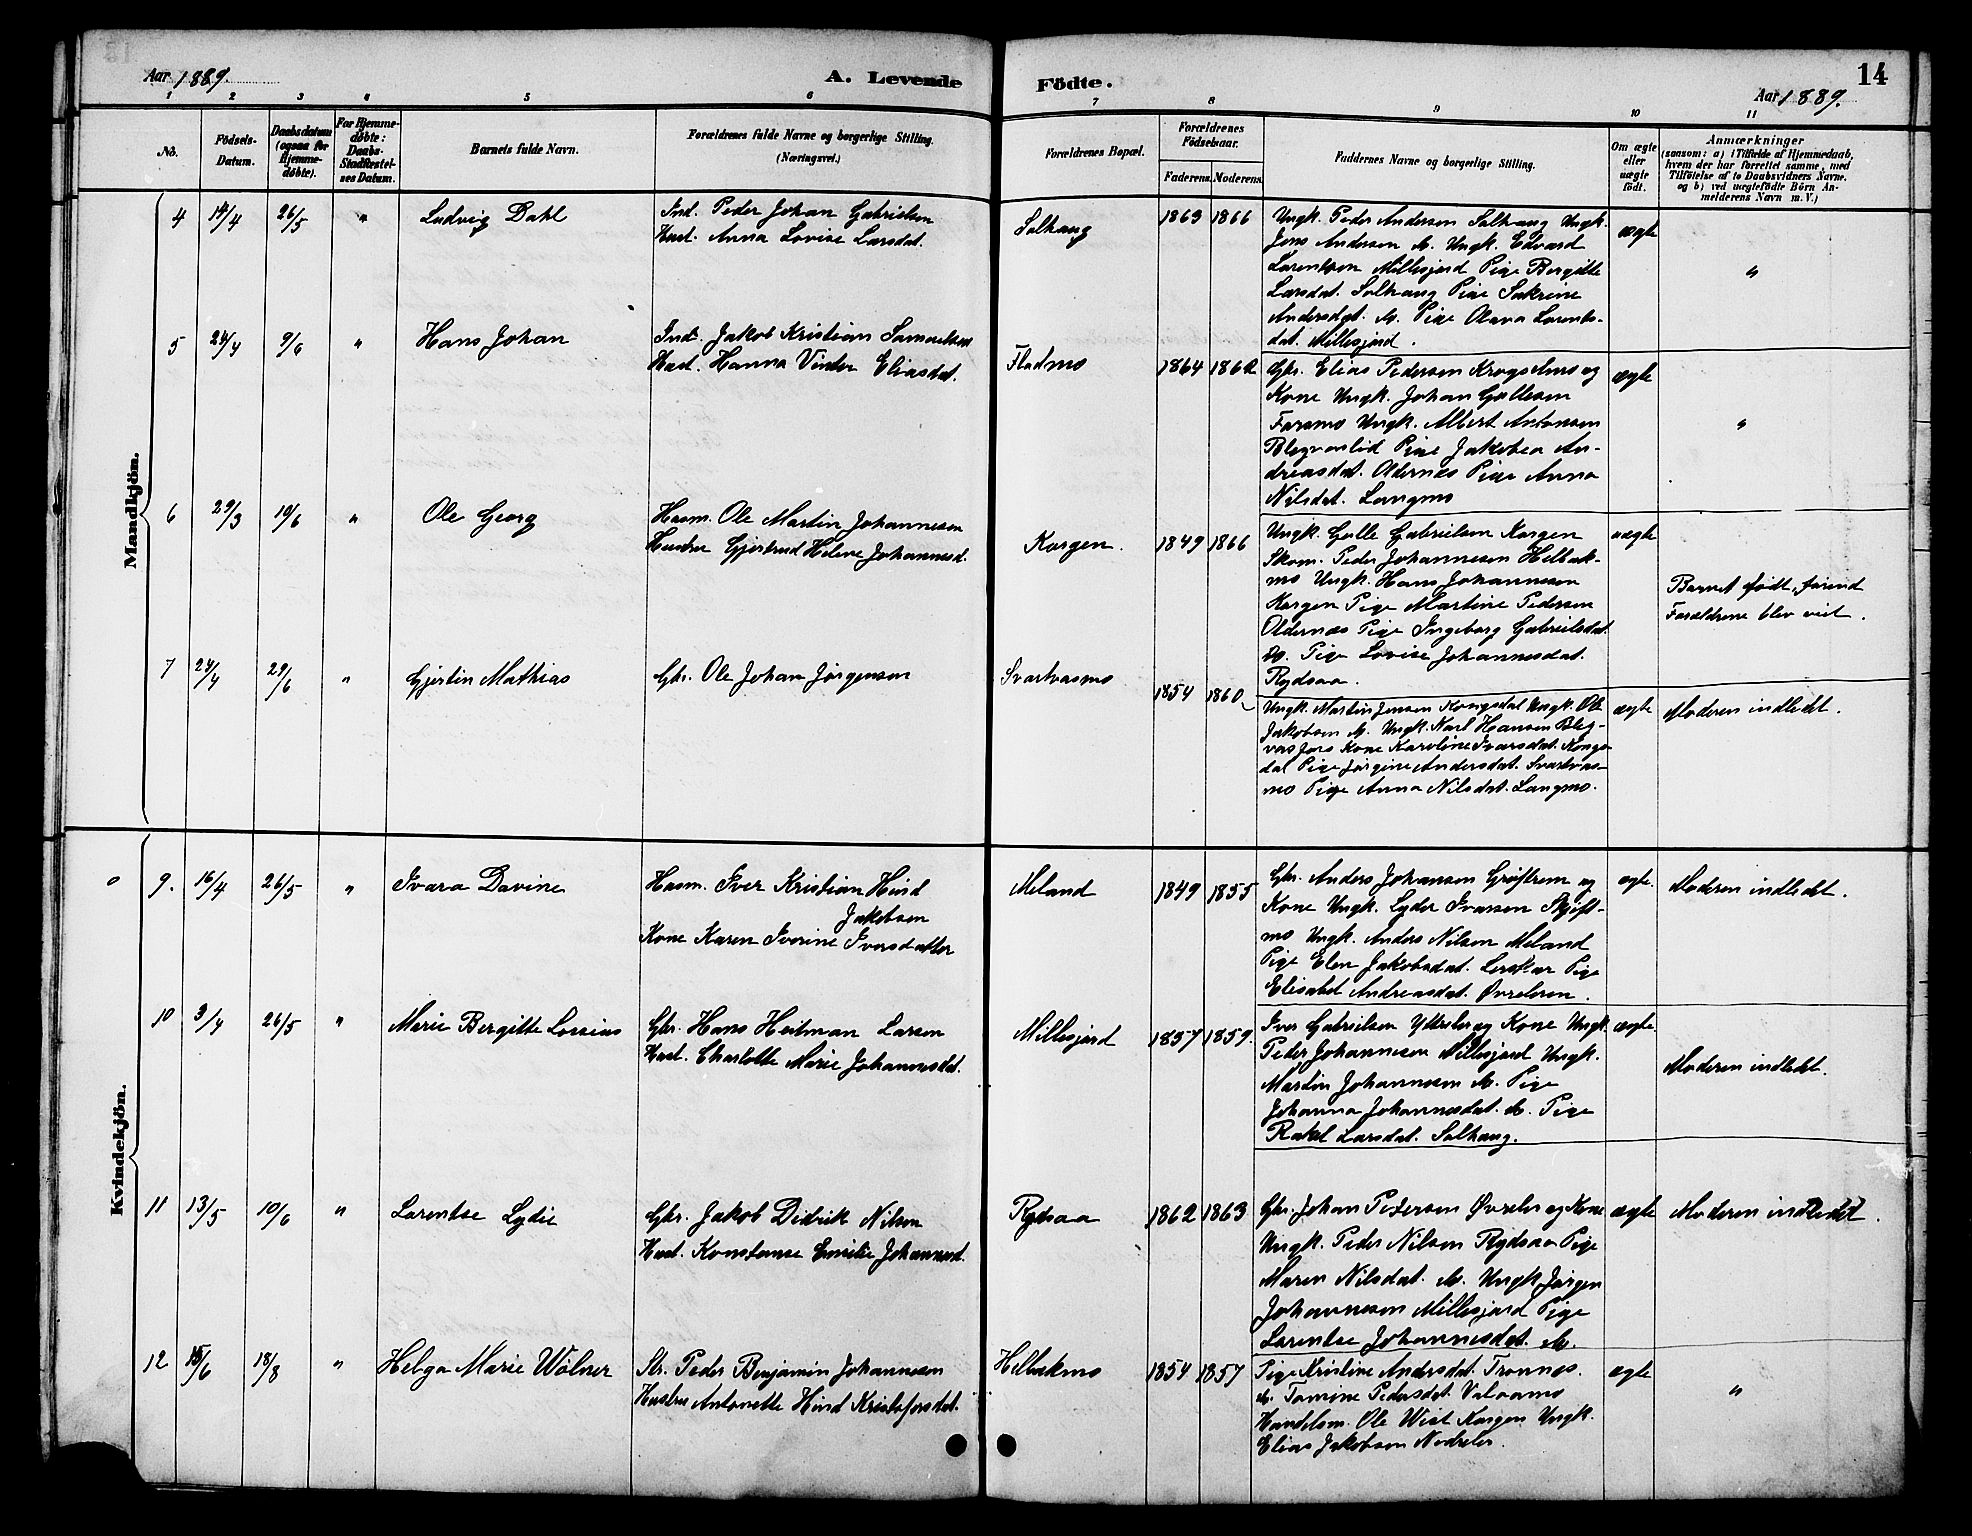 Aar 1889.
A. Levende
Födte.
Aar 1889.
14
1 2 3 4 5 6 7 8 9 10 11
No.
Födsels-
Datum.
Daabsdatum
(ogsaa for
Hjemme-
døbte).
For Hjemme-
døbte:
Daabs-
Stadfæstel-
ses Datum.
Barnets fulde Navn.
Forældrenes fulde Navne og borgerlige Stilling.
(Næringsvei.)
Forældrenes Bopæl.
Forældrenes
Födselsaar.
Faderens. Moderens.
Faddernes Navne og borgerlige Stilling.
Om ægte
eller
uægte
født.
Anmærkninger
(saasom: a) i Tilfælde af Hjemmedaab,
hvem der har forrettet samme, med
Tilföielse af to Daabsvidners Navne.
og b) ved uægtefödte Börn An-
melderens Navn m. V.)
Mandkjön.
4 14/4 26/5 " Ludvig Dahl
Ind. Peder Johan Gabrielsen
Hust. Anna Lovise Larsdat.
Solhaug
1863 1866
Ungk. Peder Andersen Solhaug Ungk.
Jens Andersen ib. Ungk. Edvard
Larentsen Millesjord Pige Bergitte
Larsdat. Solhaug Pige Sakrine
Andersdat. ib. Pige Olava Larents-
dat. Millesjord.
ægte
"
5 24/4 9/6 " Hans Johan
Ind. Jakob Kristian Samuelsen
Hust. Hanna Vinter Eliasdat.
Fladmo
1864 1862
Gbr. Elias Pedersen Krogselmo og
Kone Ungk. Johan Gullesen
Forsmo Ungk. Albert Antonsen
Blegvaslid Pige Jakobea An-
dreasdat. Oldernæs Pige Anna
Nilsdat. Langmo
ægte
"
6 29/3 10/6 " Ole Georg
Husm. Ole Martin Johannesen
Hustru Gjertrud Helene Johannesd.
Korgen.
1849 1866
Ungk. Gulle Gabrielsen Korgen
Skom. Peder Johannesen Helbæk-
mo Ungk. Hans Johannesen
Korgen Pige Martine Pedersen
Oldernæs Pige Ingeborg Gabrielsdat.
ib. Pige Lovise Johannesdat.
Rydsaa.
uægte
Barnet født, førend
Forældrene blev viet.
7 24/4 29/6 " Gjertin Mathias
Gbr. Ole Johan Jørgensen
Svartvasmo
1854 1860
Ungk. Martin Jensen Kongsdal Ungk. Ole
Jakobsen ib. Ungk. Karl Hansen Bleg-
vasfors Kone Karoline Ivarsdat. Kongs-
dal Pige Jørgine Andersdat. Svartvas-
mo Pige Anna Nilsdat. Langmo.
ægte
Moderen indledet.
Kvindekjön.
9. 16/4 26/5 " Ivara Davine
Husm. Iver Kristian Hind
Jakobsen
Kone Karen Iverine Iversdatter
Meland
1849 1855
Gbr. Anders Johansen Grøftrem og
Kone Ungk. Lyder Ivarsen Skjeft-
mo Ungk. Anders Nilsen Meland
Pige Elen Jakobsdat. Lerskar Pige
Elisabet Andreasdat. Øvreleren.
ægte.
Moderen indledet.
10 3/4 26/5 " Marie Bergitte Lossius
Gbr. Hans Heitman Larsen
Hust. Charlotte Marie Johannesdat.
Millesjord
1857 1859.
Iver Gabrielsen Ytterler og Kone Ungk.
Peder Johannesen Millesjord Ungk.
Martin Johannesen ib. Pige
Johanna Johannesdat. ib. Pige
Rakel Larsdat. Solhaug.
ægte
Moderen indledet.
11 13/5 10/6 " Larentse Lydie
Gbr. Jakob Didrik Nilsen
Hust. Konstanse Emilie Johannesd.
Rydsaa
1862 1863
Gbr. Johan Petersen Øvreler og Kone
Ungk. Peder Nilsen Rydsaa Pige
Maren Nilsdat. ib. Ungk. Jørgen
Johannesen Millesjord Pige
Larentse Johannesdat. ib.
ægte
Moderen indledet.
12 15/6 18/8 " Helga Marie Wølner
Str. Peder Benjamin Johannesen
Hustru Antonette Hind Kristofersdat.
Helbækmo
1854 1857
Pige Kristine Andersdat. Trønnes.
do. Tomine Pedersdat. Valaamo
Handelsm. Ole Wist Korgen Ungk.
Elias Jakobsen Nedreler.
ægte
"